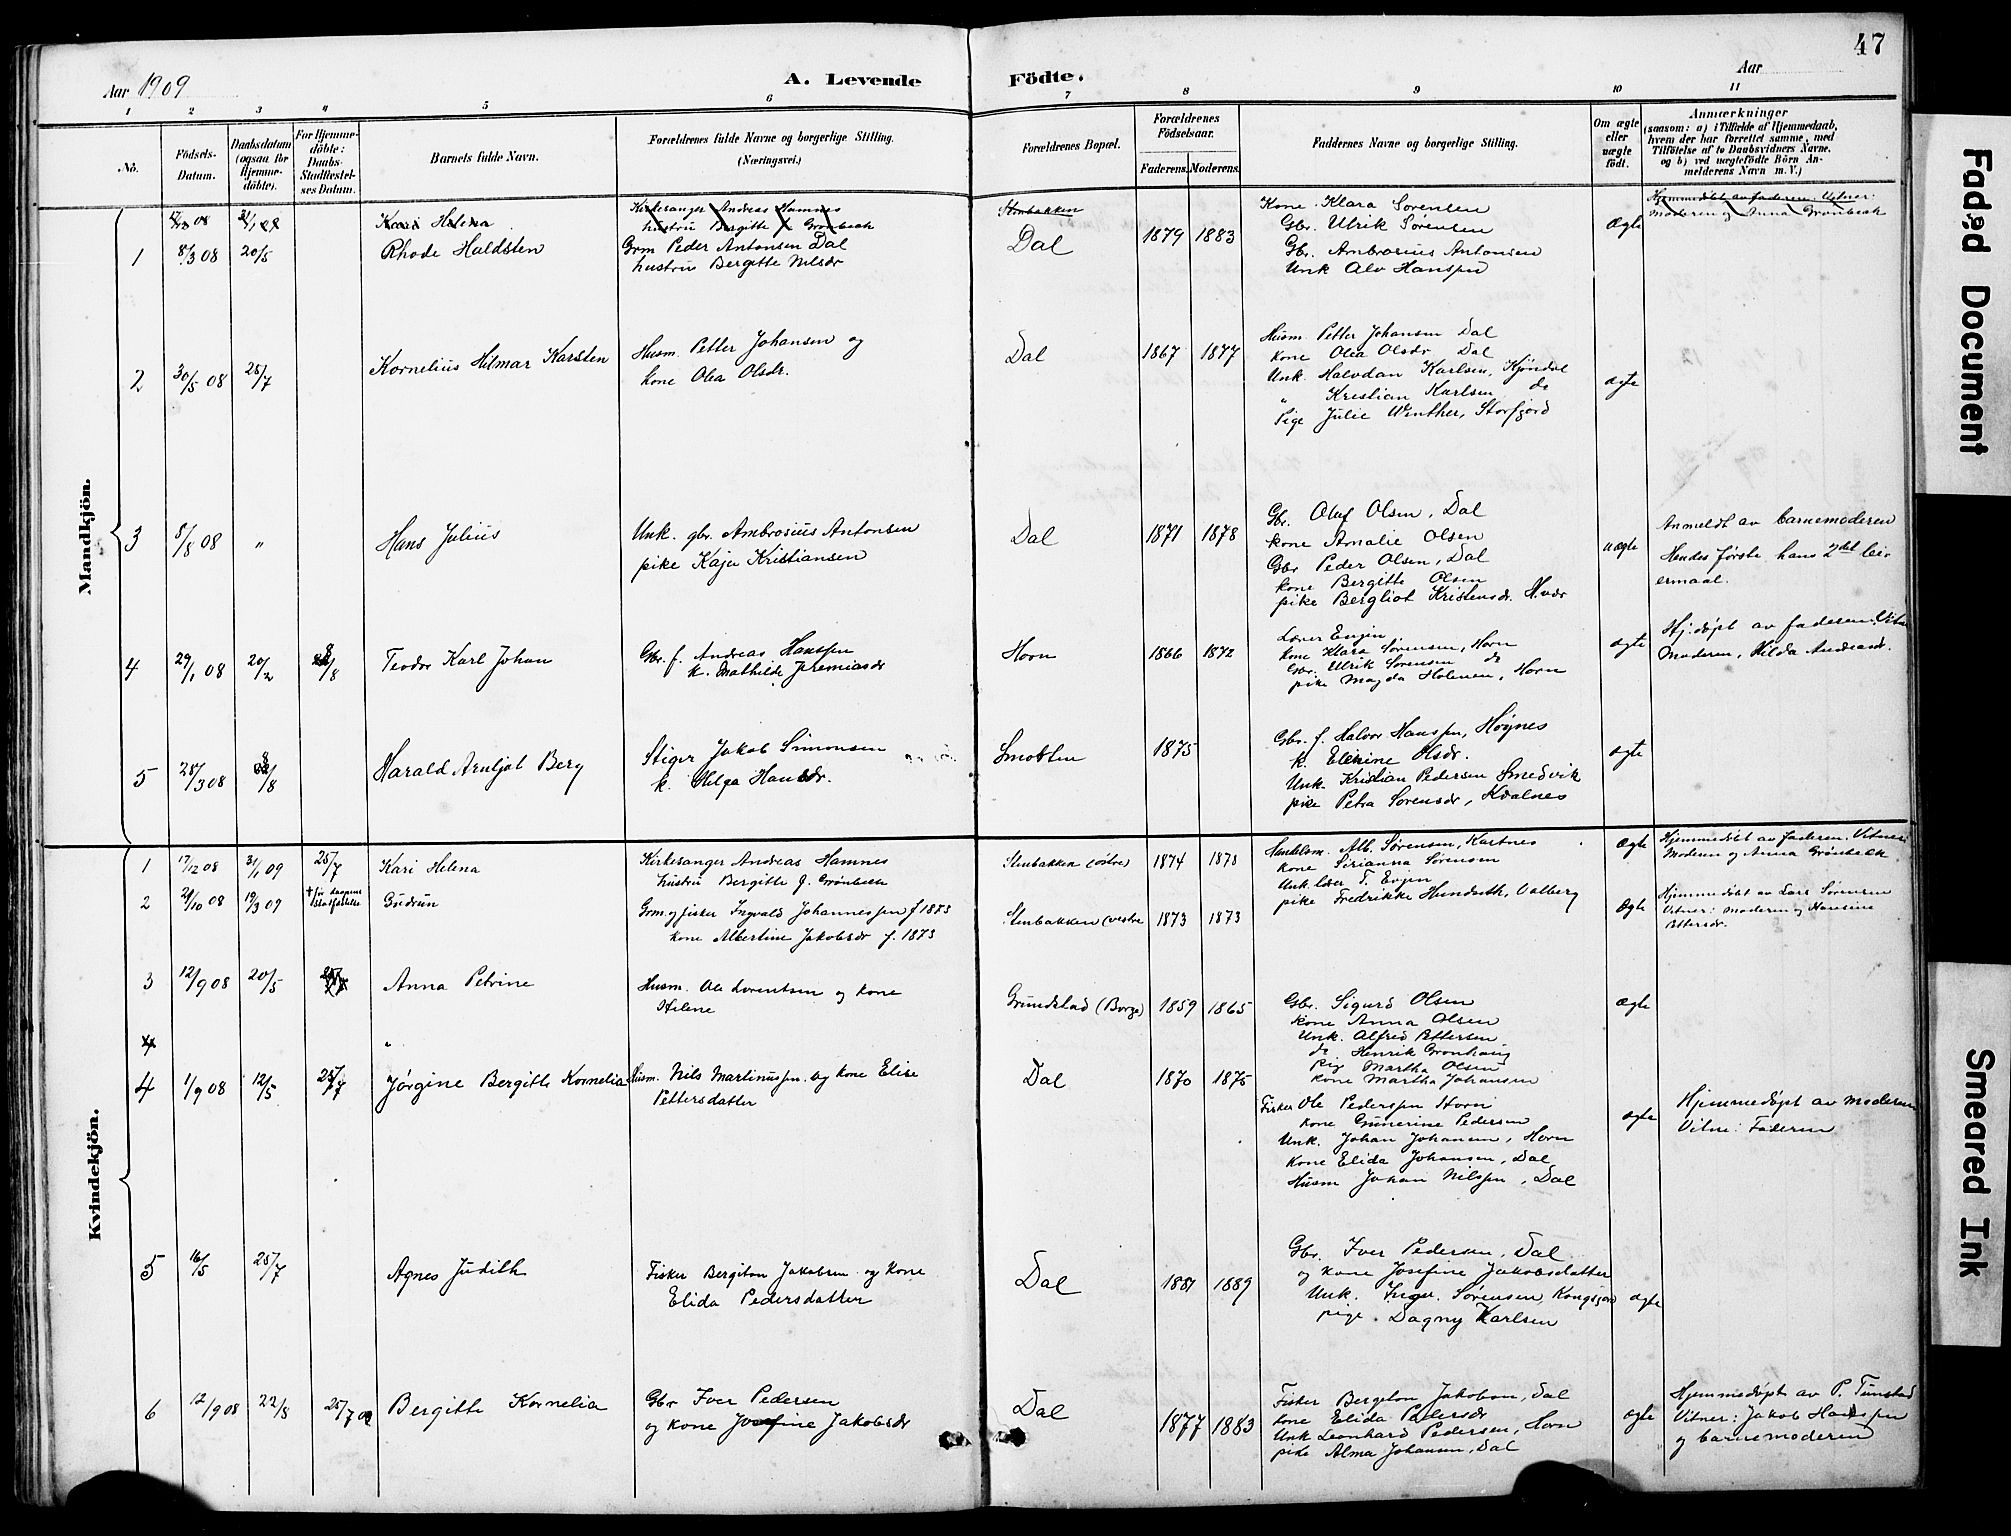 47
Aar 1909
A. Levende Födte.
Aar
1 2 3 4 5 6 7 8 9 10 11
No.
Födsels-Datum.
Daabsdatum (ogsaa for Hjemme-döbte).
For Hjemme-döbte: Daabs-Stadfæstel-ses Datum.
Barnets fulde Navn.
Forældrenes fulde Navne og borgerlige Stilling.
(Næringsvei.)
Forældrenes Bopæl.
Forældrenes Födselsaar.
Faderens. Moderens.
Faddernes Navne og borgerlige Stilling.
Om ægte eller uægte födt.
Anmærkninger
(saasom: a) i Tilfælde af Hjemmedaab,
hvem der har forrettet samme, med
Tilföielse af to Daabsvidners Navne,
og b) ved uægtefödte Börn An-
melderens Navn m. V.)
Mandkjön.
17/12 08 31/1 09 Kari Helena
Kirkesanger Andreas Hamnes
hustru Bergitte f. Grønbech
Stenbakken
Hjemmedøbt av faderen. Vitner:
Moderen og Anna Grønbech
1 8/3 08 20/5 Rhode Haldsten
Grm Peder Antonsen Dal
hustru Bergitte Nilsdr
Dal 1879 1883
Kone Klara Sørensen
Gbr. Ulrik Sørensen
Gbr. Ambrosius Antonsen
Unk Alv Hanssen
Ægte
2 30/5 08 25/7 Kornelius Hilmar Karsten
Husm. Petter Johansen og
kone Olea Olsdr.
Dal 1867 1877
Husm. Petter Johansen Dal
kone Olea Olsdr Dal
Unk. Halvdan Karlsen, Kjøndal
" Kristian Karlsen do
Pige Julie Winther, Storfjord
ægte
3 8/8 08 " Hans Julius
Unk. gbr. Ambrosius Antonsen
pike Kaja Kristiansen
Dal 1871 1878
Gbr. Oluf Olsen, Dal
kone Amalie Olsen
Gbr Peder Olsen, Dal
kone Bergitte Olsen
pike Bergliot Kristensdr.
uægte
Anmeldt av barnemoderen
Hendes første hans 2det leir
ermaal.
4 29/1 08 20/2 8/8 Teodor Karl Johan
Gbr. f. Andreas Hanssen
k. Mathilde Jeremiasdr
Horn 1866 1872
Lærer Evjen
kone Klara Sørensen, Horn
Gbr. Ulrik Sørensen do
pike Magda Holmen, Horn
ægte
Hj.døpt av faderen. Vitn
Moderen, Hilda Andreasdr.
5 28/3 08 8/8 Harald Arntjot Berg
Stiger Jakob Simonsen
k. Helga Hansdr.
Smotten 1875
Gbr. f. Halvor Hanssen, Høynes
k. Elenine Olsdr.
Unk. Kristian Pedersen Smedvik
pike Petra Sørensdr, Kvalnes
ægte
Kvindekjön.
1 17/12 08 31/1 09 25/7 Kari Helena
Kirkesanger Andreas Hamnes
hustru Bergitte f. Grønbech
Stenbakken (østre) 1874 1878
Handelsm. Alb. Sørensen, Kartnes
kone Sirianna Sørensen
Unk. lær T. Evjen
pike Fredrikke Hundseth, Valberg
Ægte
Hjemmedøbt av faderen. Vitner:
Moderen og Anna Grønbech
2 28/10 08 19/3 09 † før daapens stadfæstelse Gudrun
Grm. og fisker Ingvald Johannessen f 1873
kone Albertine Jakobsdr f. 1873
Stenbakken (vestre 1873 1873
Ægte
Hjemmedøbt av Lars Sørensen
Vitner: Moderen og Hansine
Pettersdr.
3 12/9 08 20/5 25/7 Anna Petrine
Husm. Ole Lorentsen og kone
Helene
Grundstad (Borge) 1859 1865
Gbr. Sigurd Olsen
kone Anna Olsen
Unk. Alfred Pettersen
do Henrik Grønhaug
Pig Martha Olsen
kone Martha Johansen
Ægte
4 "
4 1/9 08 12/5 25/7 Jørgine Bergitte Kornelia
Husm. Nils Martinussen og kone Elise
Pettersdatter
Dal 1870 1875
Fisker Ole Pederssen Horn
kone Gunnerine Pedersen
Unk. Johan Johansen, Horn
Kone Elida Johansen, Dal
Husm Johan Nilssen, Dal
ægte
Hjemmedøpt av moderen
Vitne: Faderen
5 16/5 25/7 Agnes Judith
Fisker Bergiton Jakobsen og kone
Elida Pedersdatter
Dal 1881 1889
Gbr. Iver Pedersen, Dal
og kone Josefine Jakobsdatter
Unk. Ingv. Sørensen, Kongsjord
pige Dagny Karlsen
ægte
6 12/9 08 22/5 25/7 09 Bergitte Kornelia
Gbr Iver Pedersen
og kone Josefine Jakobsdr
Dal 1877 1883
Fisker Bergeton Jakobsen, Dal
kone Elida Pedersdr
Unk Leonhard Pedersen, Horn
pike Alma Johansen, Dal
ægte
Hjemmedøpt av P. Tunstad
Vitner: Jakob Hanssen
og barnemoderen
Faded Document
Smeared Ink